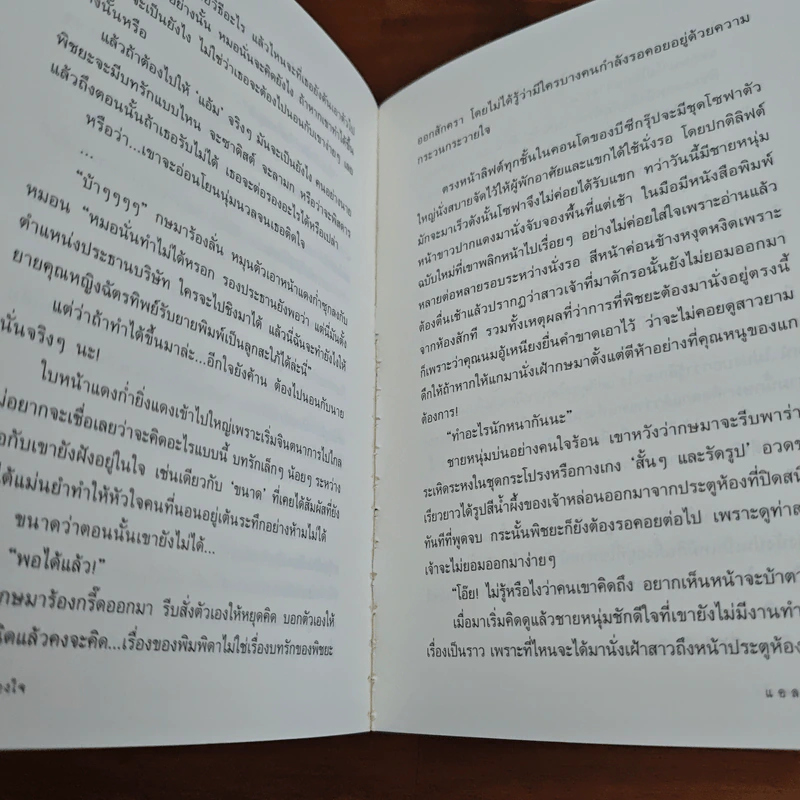 อย่างนั้น หมอนั่นจะคิดยังไง ถ้าหากเขาทำได้ขึ้น
แล้วถ้าต้องไปให้ 'แอ้ม' จริงๆ มันจะเป็นยังไง คนอย่างนาย
พิชยะจะมีบทรักแบบไหน จะซาดิสต์ จะลามก หรือว่าจะพิสดาร
แล้วถึงตอนนั้นถ้าเธอรับไม่ได้ เธอจะต่อรองอะไรได้หรือเปล่า
หรือว่า...เขาจะอ่อนโยนนุ่มนวลจนเธอติดใจ
...
"บ้าๆๆๆๆ" กษมาร้องลั่น หมุนตัวเอาหน้าแดงก่ำซุกลงกับ
หมอน "หมอนั่นทำไม่ได้หรอก รองประธานยังพอว่า แต่นี่มันตั้ง
ตำแหน่งประธานบริษัท ใครจะไปชิงมาได้ แล้วนี่ฉันจะทำยังไงให้
ยายคุณหญิงฉัตรทิพย์รับยายพิมพ์เป็นลูกสะใภ้ได้ล่ะนี่"
แต่ว่าถ้าทำได้ขึ้นมาล่ะ...อีกใจยังค้าน ต้องไปนอนกับนาย
นั่นจริงๆ นะ!
ใบหน้าแดงก่ำยิ่งแดงเข้าไปใหญ่เพราะเริ่มจินตนาการไปไกล
ไม่อยากจะเชื่อเลยว่าจะคิดอะไรแบบนี้ บทรักเล็กๆ น้อยๆ ระหว่าง
กับเขายังฝังอยู่ในใจ เช่นเดียวกับ 'ขนาด' ที่เคยได้สัมผัสที่ยัง
ได้แม่นยำทำให้หัวใจคนที่นอนอยู่เต้นระทึกอย่างห้ามไม่ได้
ขนาดว่าตอนนั้นเขายังไม่ได้...
"พอได้แล้ว!"
กษมาร้องกรี๊ดออกมา รีบสั่งตัวเองให้หยุดคิด บอกตัวเองให้
คิดแล้วคงจะคิด...เรื่องของพิมพิดาไม่ใช่เรื่องบทรักของพิชยะ
ออกสักครา โดยไม่ได้รู้ว่ามีใครบางคนกำลังรอคอยอยู่ด้วยความ
กระวนกระวายใจ
ตรงหน้าลิฟต์ทุกชั้นในคอนโดของบีซีกรุ๊ปจะมีชุดโซฟาตัว
ใหญ่นั่งสบายจัดไว้ให้ผู้พักอาศัยและแขกได้ใช้นั่งรอ โดยปกติลิฟต์
มักจะมาเร็วดังนั้นโซฟาจึงไม่ค่อยได้รับแขก ทว่าวันนี้มีชายหนุ่ม
หน้าขาวปากแดงมานั่งจับจองพื้นที่แต่เช้า ในมือมีหนังสือพิมพ์
ฉบับใหม่ที่เขาพลิกหน้าไปเรื่อยๆ อย่างไม่ค่อยใส่ใจเพราะอ่านแล้ว
หลายต่อหลายรอบระหว่างนั่งรอ สีหน้าค่อนข้างหงุดหงิดเพราะ
ต้องตื่นเช้าแล้วปรากฏว่าสาวเจ้าที่มาดักรอนั้นยังไม่ยอมออกมา
จากห้องสักที รวมทั้งเหตุผลที่ว่าการที่พิชยะต้องมานั่งอยู่ตรงนี้
ก็เพราะว่าคุณนมอู้เหนียงยื่นคำขาดเอาไว้ ว่าจะไม่คอยดูสาวยาม
ดึกให้ถ้าหากให้แกมานั่งเฝ้ากษมาตั้งแต่ตีห้าอย่างที่คุณหนูของแก
ต้องการ!
"ทำอะไรนักหนากันนะ"
ชายหนุ่มบ่นอย่างคนใจร้อน เขาหวังว่ากษมาจะรีบพาร่าง
ระเหิดระหงในชุดกระโปรงหรือกางเกง 'สั้นๆ และรัดรูป' อวดขา
เรียวยาวได้รูปสีน้ำผึ้งของเจ้าหล่อนออกมาจากประตูห้องที่ปิดสนิ
ทันทีที่พูดจบ กระนั้นพิชยะก็ยังต้องรอคอยต่อไป เพราะดูท่าส
เจ้าจะไม่ยอมออกมาง่ายๆ
"โอ๊ย! ไม่รู้หรือไงว่าคนเขาคิดถึง อยากเห็นหน้าจะบ้าตา
เมื่อมาเริ่มคิดดูแล้วชายหนุ่มชักดีใจที่เขายังไม่มีงานทำ
เรื่องเป็นราว เพราะที่ไหนจะได้มานั่งเฝ้าสาวถึงหน้าประตูห้อง
แอล